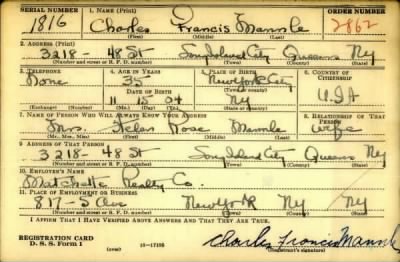 SERIAL NUMBER 1. NAME (Print) ORDER NUMBER
1816 Charles Francis Mannle 2862
(First) (Middle) (Last)
2. ADDRESS (Print)
3218- 48 St Long Island City Queens Ny
(Number and street or R. F. D. number) (Town) (County) (State)
3. TELEPHONE 4. AGE IN YEARS 5. PLACE OF BIRTH 6. COUNTRY OF CITIZENSHIP
None 35 New York City
DATE OF BIRTH (Town or county)
11 15 04 Ny U.S.A
(Exchange) (Number) (Mo.) (Day) (Yr.) (State or country)
7. NAME OF PERSON WHO WILL ALWAYS KNOW YOUR ADDRESS 8. RELATIONSHIP OF THAT PERSON
Mrs. Helen Rose Mannle wife
(Mr., Mrs., Miss) (First) (Middle) (Last)
9. ADDRESS OF THAT PERSON
3218- 48 St Long Island City Queens Ny
(Number and street or R. F. D. number) (Town) (County) (State)
10. EMPLOYER'S NAME
Realty Co.
11. PLACE OF EMPLOYMENT OR BUSINESS
817-5 Ave New York Ny Ny
(Number and street or R. F. D. number) (Town) (County) (State)
I AFFIRM THAT I HAVE VERIFIED ABOVE ANSWERS AND THAT THEY ARE TRUE.
REGISTRATION CARD
D. S. S. Form 1 (over) 16-17105 Charles Francis Mannle
(Registrant's signature)